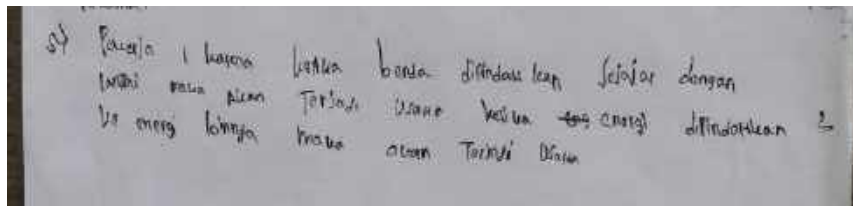 5) karena ketika benda dipindahkan sejajar dengan
lantai maka akan Terjadi Usaha ketika energi dipindahkan
ke energi lainnya maka akan Terjadi Usaha